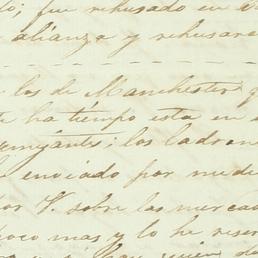 fue rehusado en
alianza y rehusara
los de Manchester q
ha tiempo esta en
los ladron
enviado por medi
or V. sobre las mercad
poco mas y lo he reser